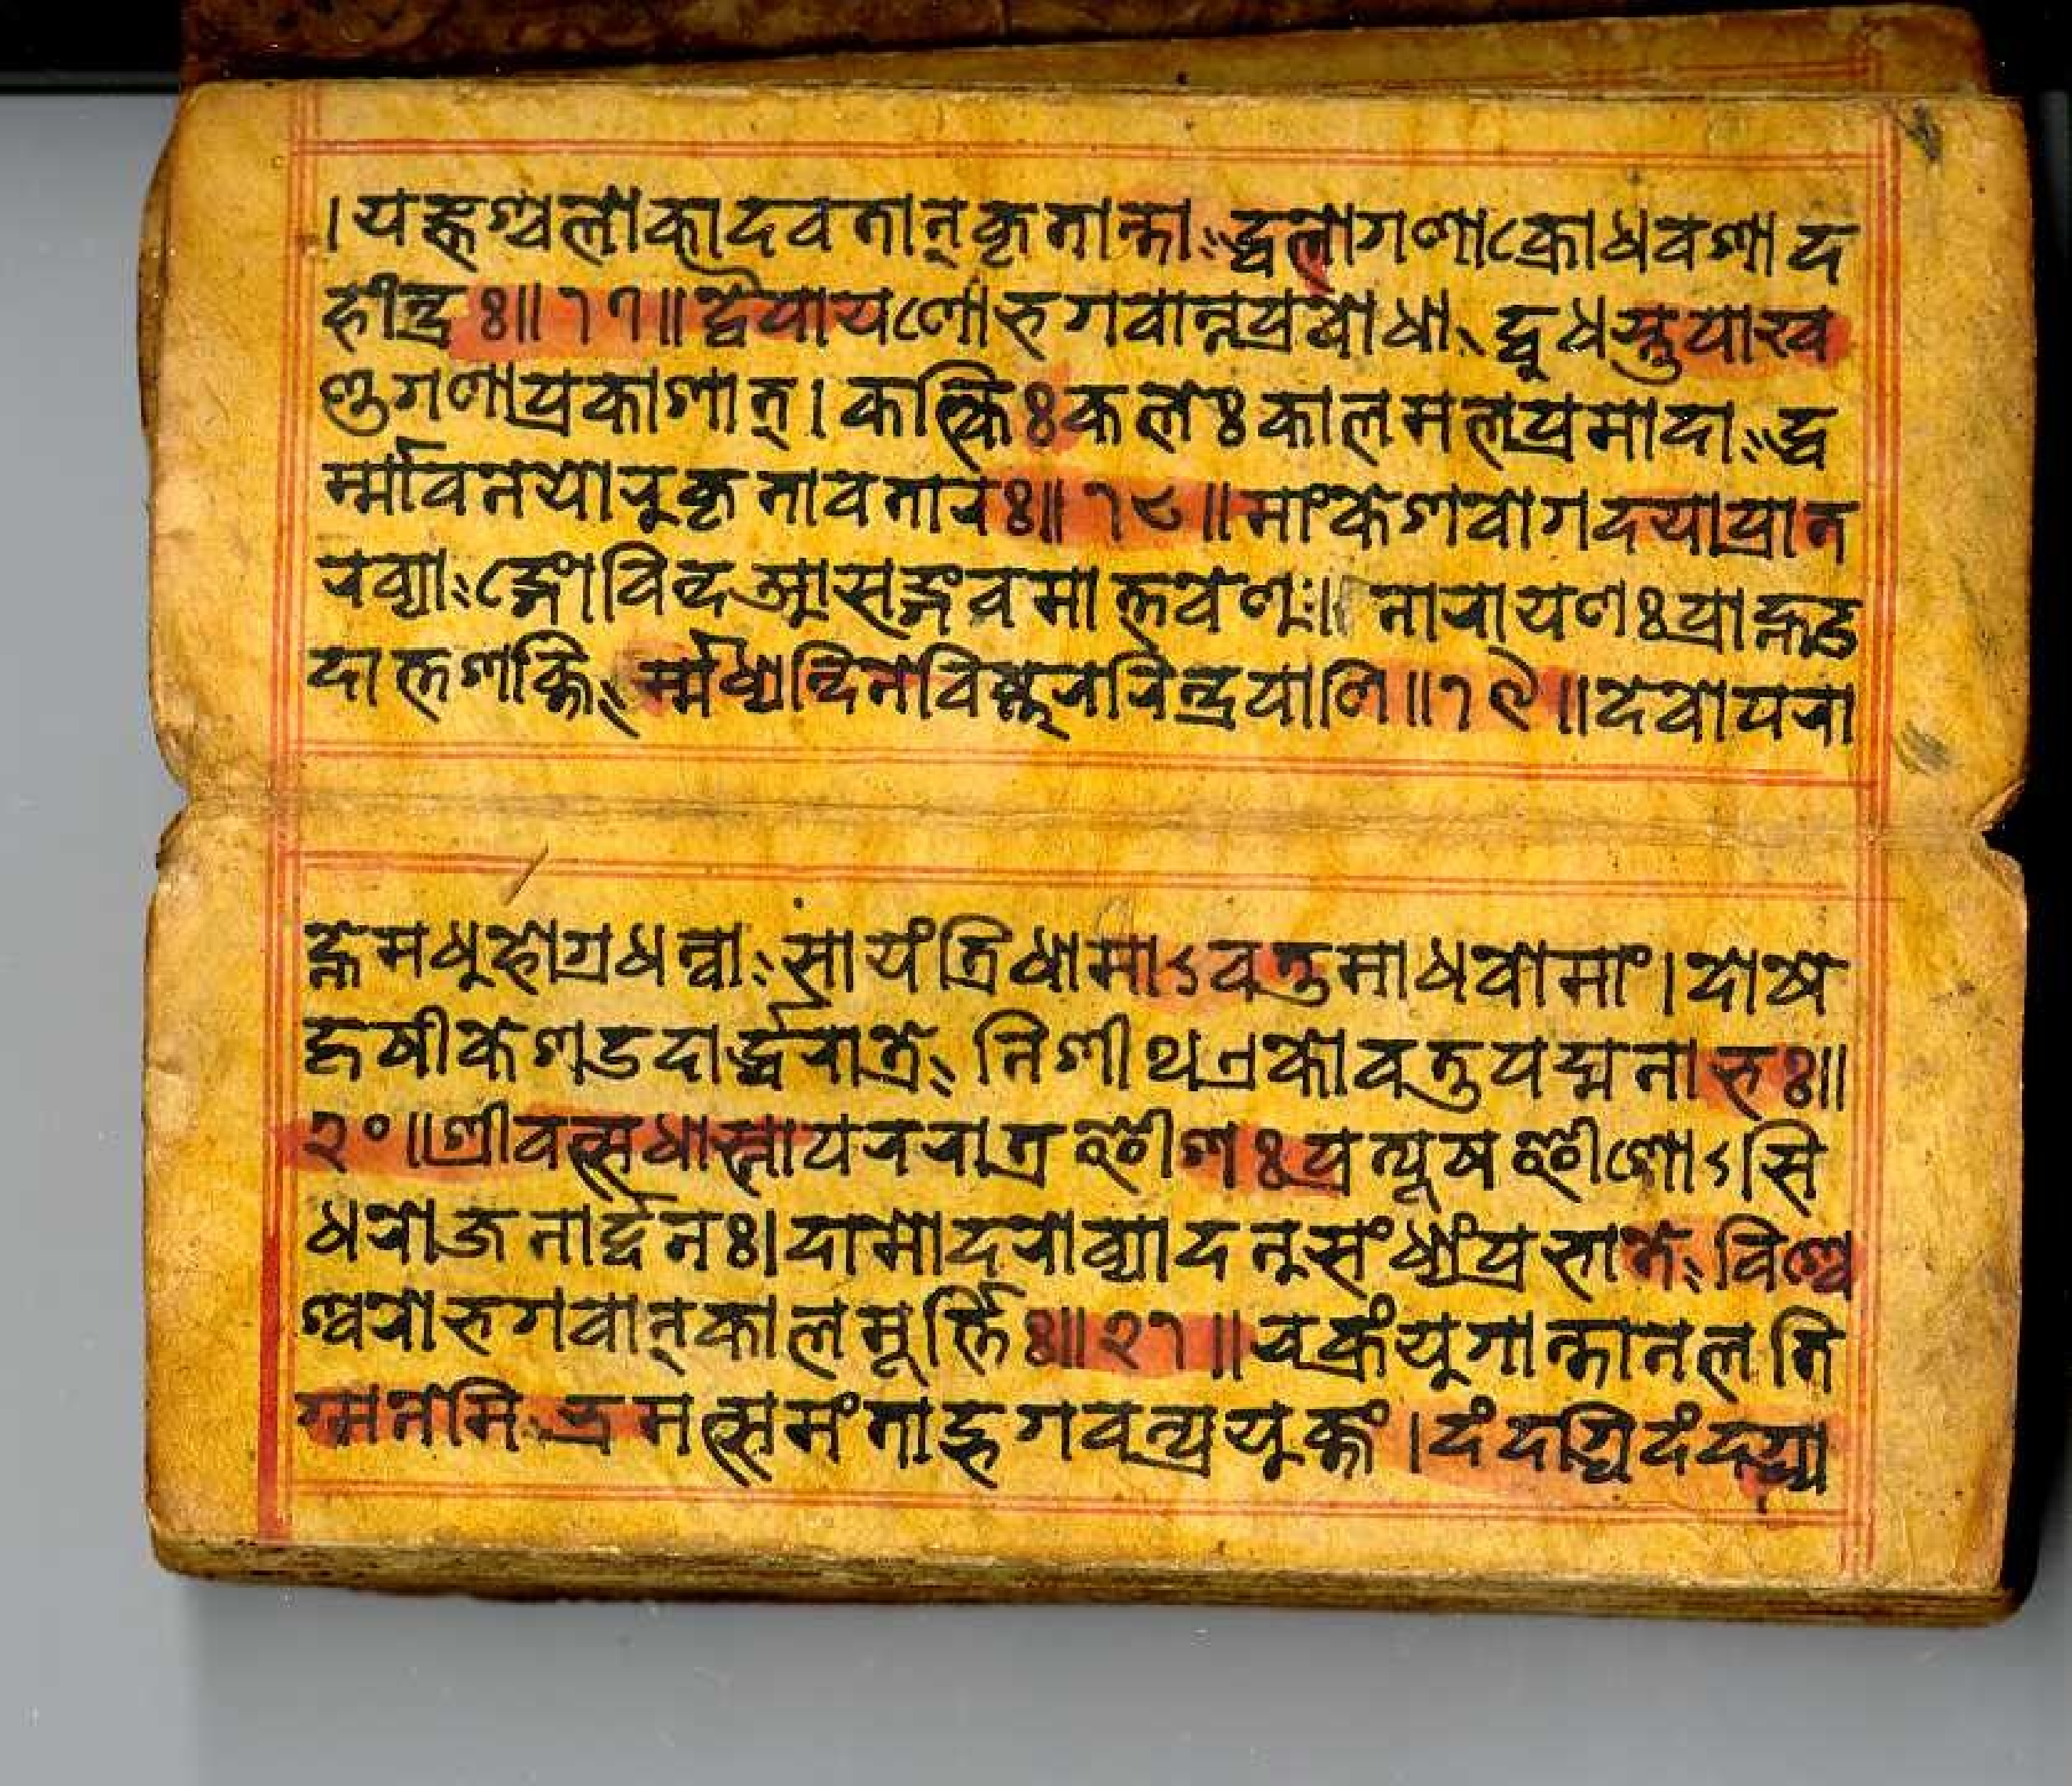 ।यज्ञश्चलोकादवतात्कृतान्ताद्बलोगणाक्रोधवशाद
हीन्द्रः॥१७॥द्वैपायणोभगवान्नप्रबोधाद्बुधस्तुपाख
ण्डगणप्रकाशात्।कल्किःकलेःकालमलप्रमादाद्ध
र्म्मावनयोरुकृतावतारः॥१८॥मांकेशवोगदयाप्रात
रव्याङ्गोविंदआसङ्गवमात्तवेणुः॥नारायणःप्राह्नउ
दात्तशक्तिर्म्मध्यन्दिनेविष्णुररिन्द्रपाणि॥१९॥देवोपरा
ह्नेमधुहोग्रधन्वासायंत्रिधामाऽवतुमाधवोमां।दोषे
हृषीकेशउदार्द्धरात्रेनिशीथएकोवतुपद्मनाभः॥
२०॥श्रीवत्सधाम्नापररात्रईशःप्रत्यूषईशोऽसि
धरोजनार्द्दनः।दामोदरोव्यादनुसंध्यंप्रभातेविश्वे
श्वरोभगवान्कालमूर्त्तिः॥२१॥चक्रंयुगान्तानलति
ग्मनेमिभ्रमत्समंताद्भगवत्प्रयुक्तं।दंदग्धिदंदग्ध्य